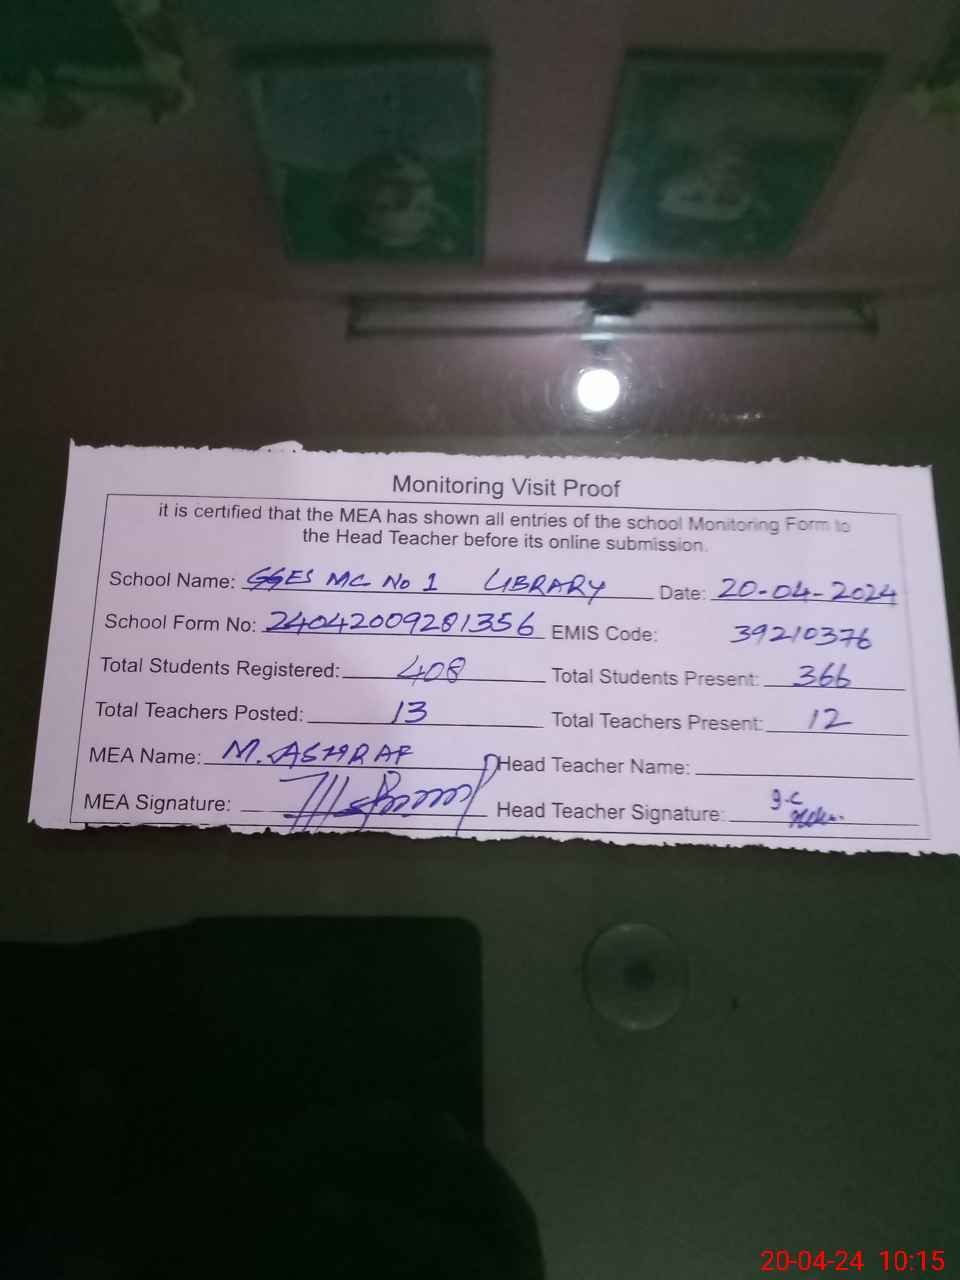 Monitoring Visit Proof
it is certified that the MEA has shown all entries of the school Monitoring Form to
the Head Teacher before its online submission.
School Name: GGES MC No 1 LIBRARY Date: 20-04-2024
School Form No: 24042009281356 EMIS Code: 39210376
Total Students Registered: 408 Total Students Present: 366
Total Teachers Posted: 13 Total Teachers Present: 12
MEA Name: M. ASHRAF Head Teacher Name:
MEA Signature: Head Teacher Signature: g.c
20-04-24 10:15